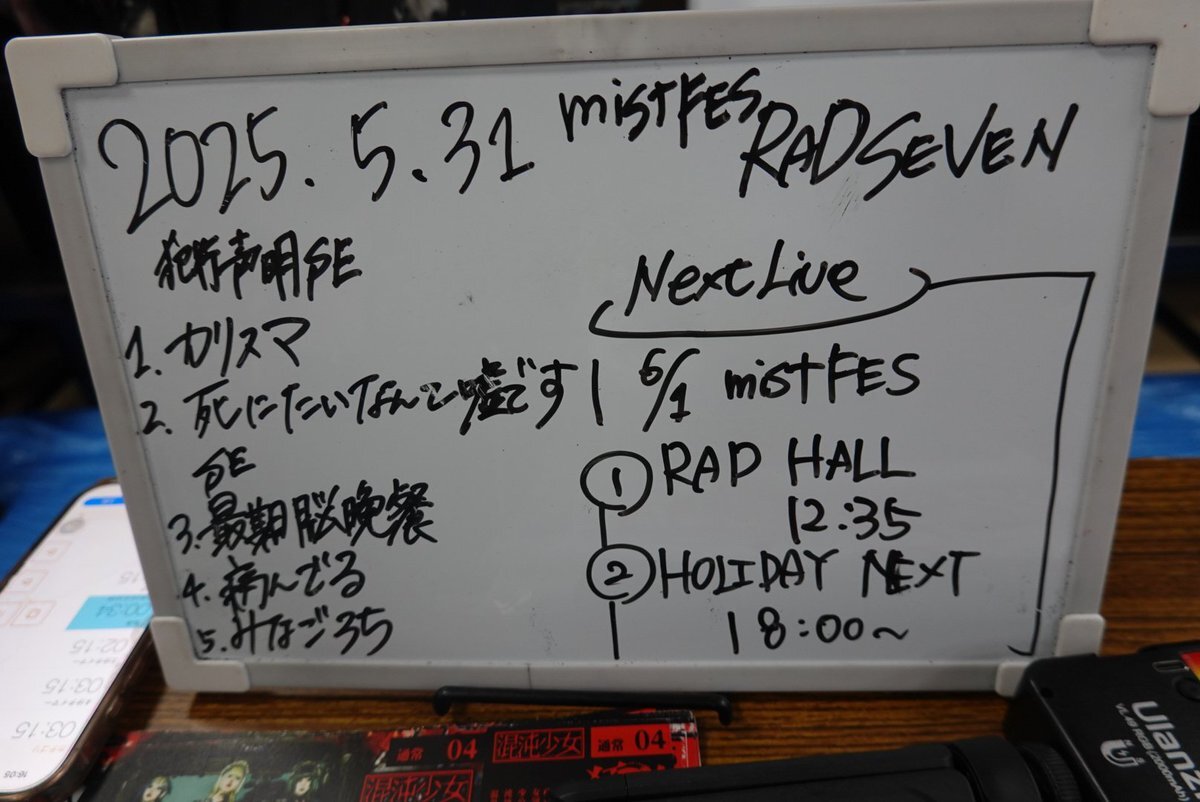 2025.5.31 mistFES RADSEVEN
犯行声明SE
1. カリスマ
2. 死にたいなんて嘘です
SE
3. 最期脳晩餐
4. 病んでる
5. みなごろち
Next Live
6/1 mistFES
① RAD HALL
12:35
② HOLIDAY NEXT
18:00~
00:34
02:15
03:15
03:15
16:05
通常 04 混沌少女 通常 04
混沌少女
Ulanzi